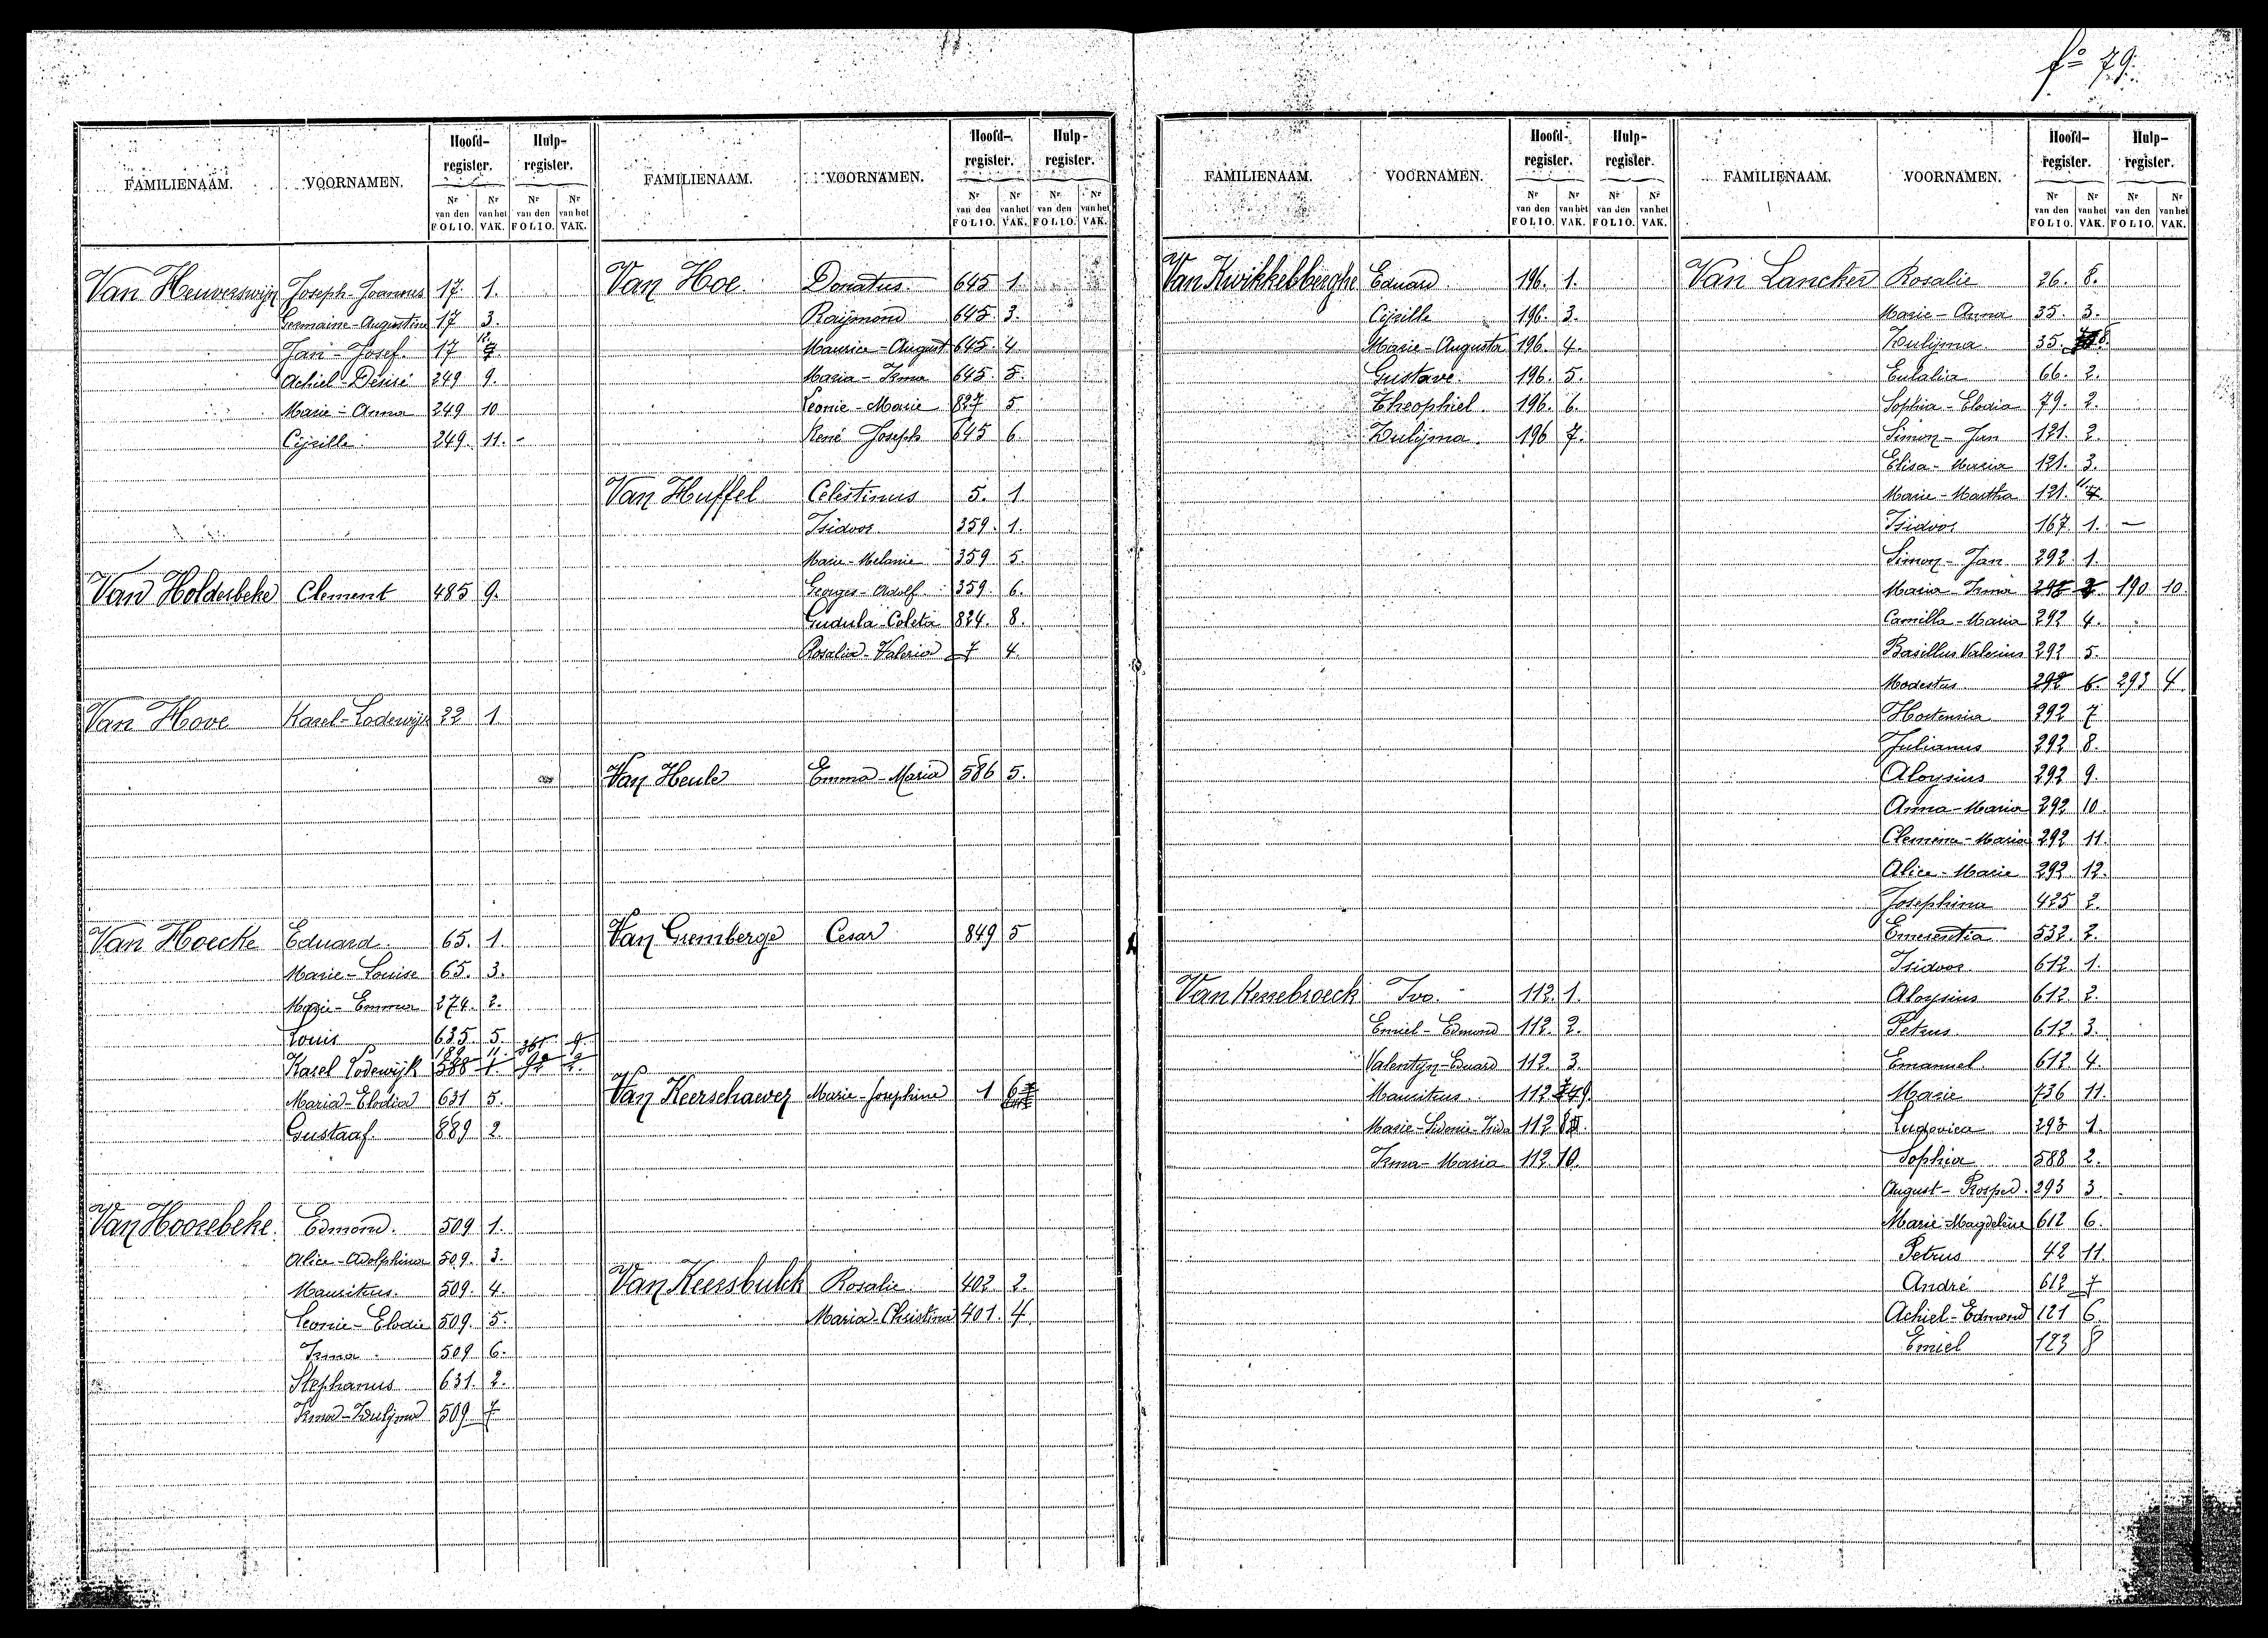 fo 79.
FAMILIENAAM. VOORNAMEN. Hoofd-register. Hulp-register.
Nr van den FOLIO. Nr van het VAK. Nr van den FOLIO. Nr van het VAK.
Van Heuverswijn Joseph-Joannes 17. 1.
Germaine-Augustine 17 3.
Jan-Josef. 17
Achiel-Désiré 249 9.
Marie-Anna 249 10
Cijrille 249. 11. -
Van Holderbeke Clement 485 9.
Van Hove Karel-Lodewijk 22 1
Van Hoecke Eduard. 65. 1.
Marie-Louise 65. 3.
Marie-Emma 274. 2.
Louis 635. 5.
189 11. 361 9.
Karel Lodewijk 388 1. 92 2.
Maria-Elodia 631 5.
Gustaaf. 889 2.
Van Hoorebeke. Edmond. 509 1.
Alice-Adolphina 509. 3.
Mauritus. 509. 4.
Leonie-Elodie 509. 5.
Irma. 509 6.
Stephanus 631. 2.
Irma-Zulijma 509 7
FAMILIENAAM. VOORNAMEN. Hoofd-register. Hulp-register.
Nr van den FOLIO. Nr van het VAK. Nr van den FOLIO. Nr van het VAK.
Van Hoe. Donatus 645 1.
Raijmond 645. 3.
Maurice-August 645. 4
Maria-Irma 645. 5.
Leonie-Marie 827 5
René Joseph 645 6.
Van Huffel Celestinus 5. 1
Isidoor 359. 1.
Marie-Melanie 359 5.
Georges-Adolf. 359. 6.
Gudula-Coleta 824. 8.
Rosalia-Valeria 7 4.
Van Heule Emma-Maria 586 5.
Van Gremberge Cesar 849 5
Van Keerschaever Marie-Josephine 1 6
Van Keersbulck Rosalie. 402 2.
Maria-Christina 401. 4.
FAMILIENAAM. VOORNAMEN. Hoofd-register. Hulp-register.
Nr van den FOLIO. Nr van het VAK. Nr van den FOLIO. Nr van het VAK.
Van Kwikkelberghe Eduard. 196. 1.
Cijrille 196. 3.
Marie-Augusta 196. 4.
Gustave. 196. 5.
Theophiel. 196. 6.
Zulijma. 196 7.
Van Kerrebroeck Ivo. 112. 1.
Emiel-Edmond 112. 2.
Valentyn-Eduard 112. 3.
Mauritus. 112 9.
Marie-Sidonie-Irida 112 8
Irma-Maria 112. 10.
FAMILIENAAM. VOORNAMEN. Hoofd-register. Hulp-register.
Nr van den FOLIO. Nr van het VAK. Nr van den FOLIO. Nr van het VAK.
Van Lancker Rosalie 26. 8.
Marie-Anna 35. 3.
Zulijma 35. 8.
Eulalia 66. 2.
Sophia-Elodia 79. 2.
Simon-Jan 121. 2.
Elisa-Maria 121. 3.
Marie-Martha 121. 11
Isidoor 167. 1. -
Simon-Jan 292 1.
Maria-Irma 292 2 190 10.
Camilla-Maria 292 4.
Basillus Valerius 292 5.
Modestus. 292 6. 293 4.
Hortensia 292 7
Julianus 292 8.
Aloysius 292 9.
Anna-Maria 292 10.
Clemena-Maria 292 11.
Alice-Marie 292 12.
Josephina 425 2.
Emerentia 532. 2.
Isidoor 612. 1.
Aloysius 612. 2.
Petrus 612 3.
Emanuel. 612. 4.
Maria 736 11.
Ludovica 293 1.
Sophia 588 2.
August-Prosper. 293 3.
Marie-Magdelène 612 6.
Petrus 42 11.
André 612 7
Achiel-Edmond 121 6.
Emiel 123 8